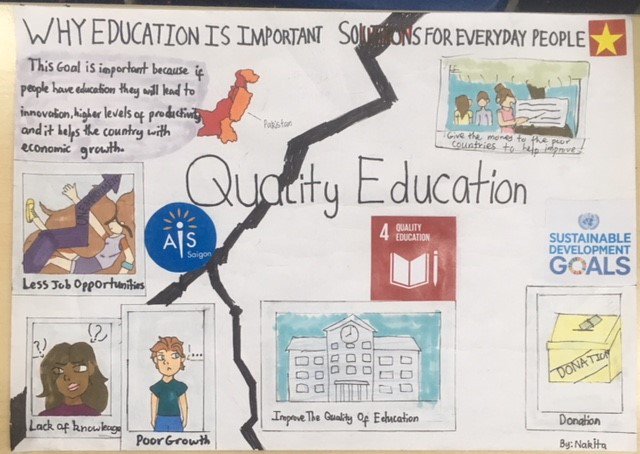 WHY EDUCATION IS IMPORTANT
SOLUTIONS FOR EVERYDAY PEOPLE
This Goal is important because if
people have education they will lead to
innovation, higher levels of productivity
and it helps the country with
economic growth.
Pakistan
Give the money to the poor
countries to help improve
Quality Education
Less Job Opportunities
AIS
Saigon
4 QUALITY
EDUCATION
SUSTAINABLE
DEVELOPMENT
GOALS
? (?)
Lack of knowledge
!...
Poor Growth
Improve The Quality Of Education
DONATION
Donation
By: Nakita